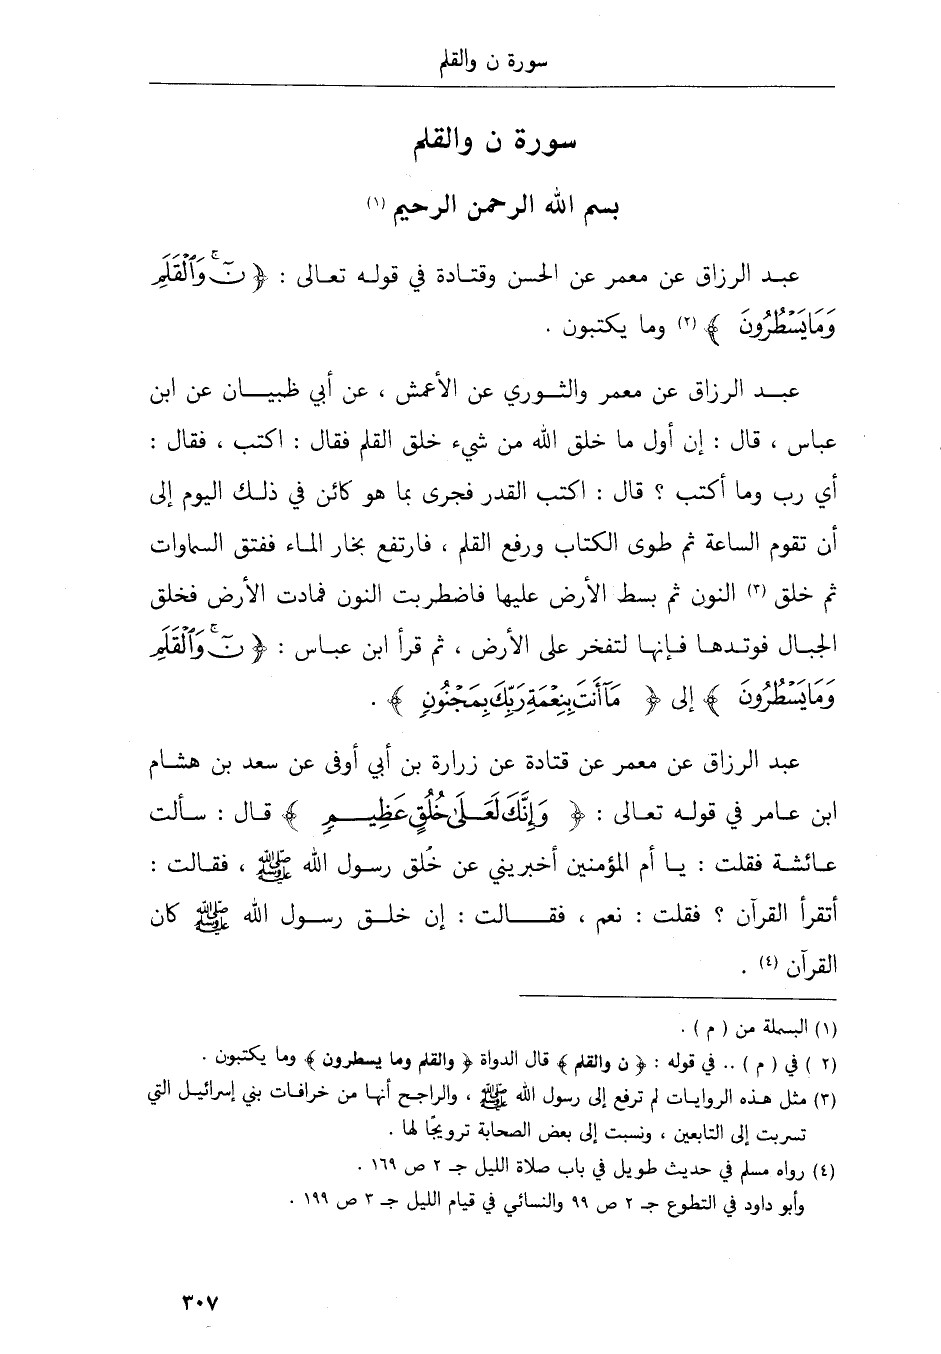 سورة ن والقلم
سورة ن والقلم
بسم الله الرحمن الرحيم (١)
عبد الرزاق عن معمر عن الحسن وقتادة في قوله تعالى : ﴿ نٓ ۚ وَٱلْقَلَمِ
وَمَا يَسْطُرُونَ ﴾ (٢) وما يكتبون .
عبد الرزاق عن معمر والثوري عن الأعمش ، عن أبي ظبيان عن ابن
عباس ، قال : إن أول ما خلق الله من شيء خلق القلم فقال : اكتب ، فقال :
أي رب وما أكتب ؟ قال : اكتب القدر فجرى بما هو كائن في ذلك اليوم إلى
أن تقوم الساعة ثم طوى الكتاب ورفع القلم ، فارتفع بخار الماء ففتق السماوات
ثم خلق (٣) النون ثم بسط الأرض عليها فاضطربت النون فمادت الأرض فخلق
الجبال فوتدها فإنها لتفخر على الأرض ، ثم قرأ ابن عباس : ﴿ نٓ ۚ وَٱلْقَلَمِ
وَمَا يَسْطُرُونَ ﴾ إلى ﴿ مَآ أَنتَ بِنِعْمَةِ رَبِّكَ بِمَجْنُونٍ ﴾ .
عبد الرزاق عن معمر عن قتادة عن زرارة بن أبي أوفى عن سعد بن هشام
ابن عامر في قوله تعالى : ﴿ وَإِنَّكَ لَعَلَىٰ خُلُقٍ عَظِيمٍ ﴾ قال : سألت
عائشة فقلت : يا أم المؤمنين أخبريني عن خُلق رسول الله ﷺ ، فقالت :
أتقرأ القرآن ؟ فقلت : نعم ، فقالت : إن خلق رسول الله ﷺ كان
القرآن (٤) .
(١) البسملة من ( م ) .
(٢ ) في ( م ) .. في قوله : ﴿ ن والقلم ﴾ قال الدواة ﴿ والقلم وما يسطرون ﴾ وما يكتبون .
(٣) مثل هذه الروايات لم ترفع إلى رسول الله ﷺ ، والراجح أنها من خرافات بني إسرائيل التي
تسربت إلى التابعين ، ونسبت إلى بعض الصحابة ترويجًا لها .
(٤) رواه مسلم في حديث طويل في باب صلاة الليل جـ ٢ ص ١٦٩ .
وأبو داود في التطوع جـ ٢ ص ٩٩ والنسائي في قيام الليل جـ ٣ ص ١٩٩ .
٣٠٧